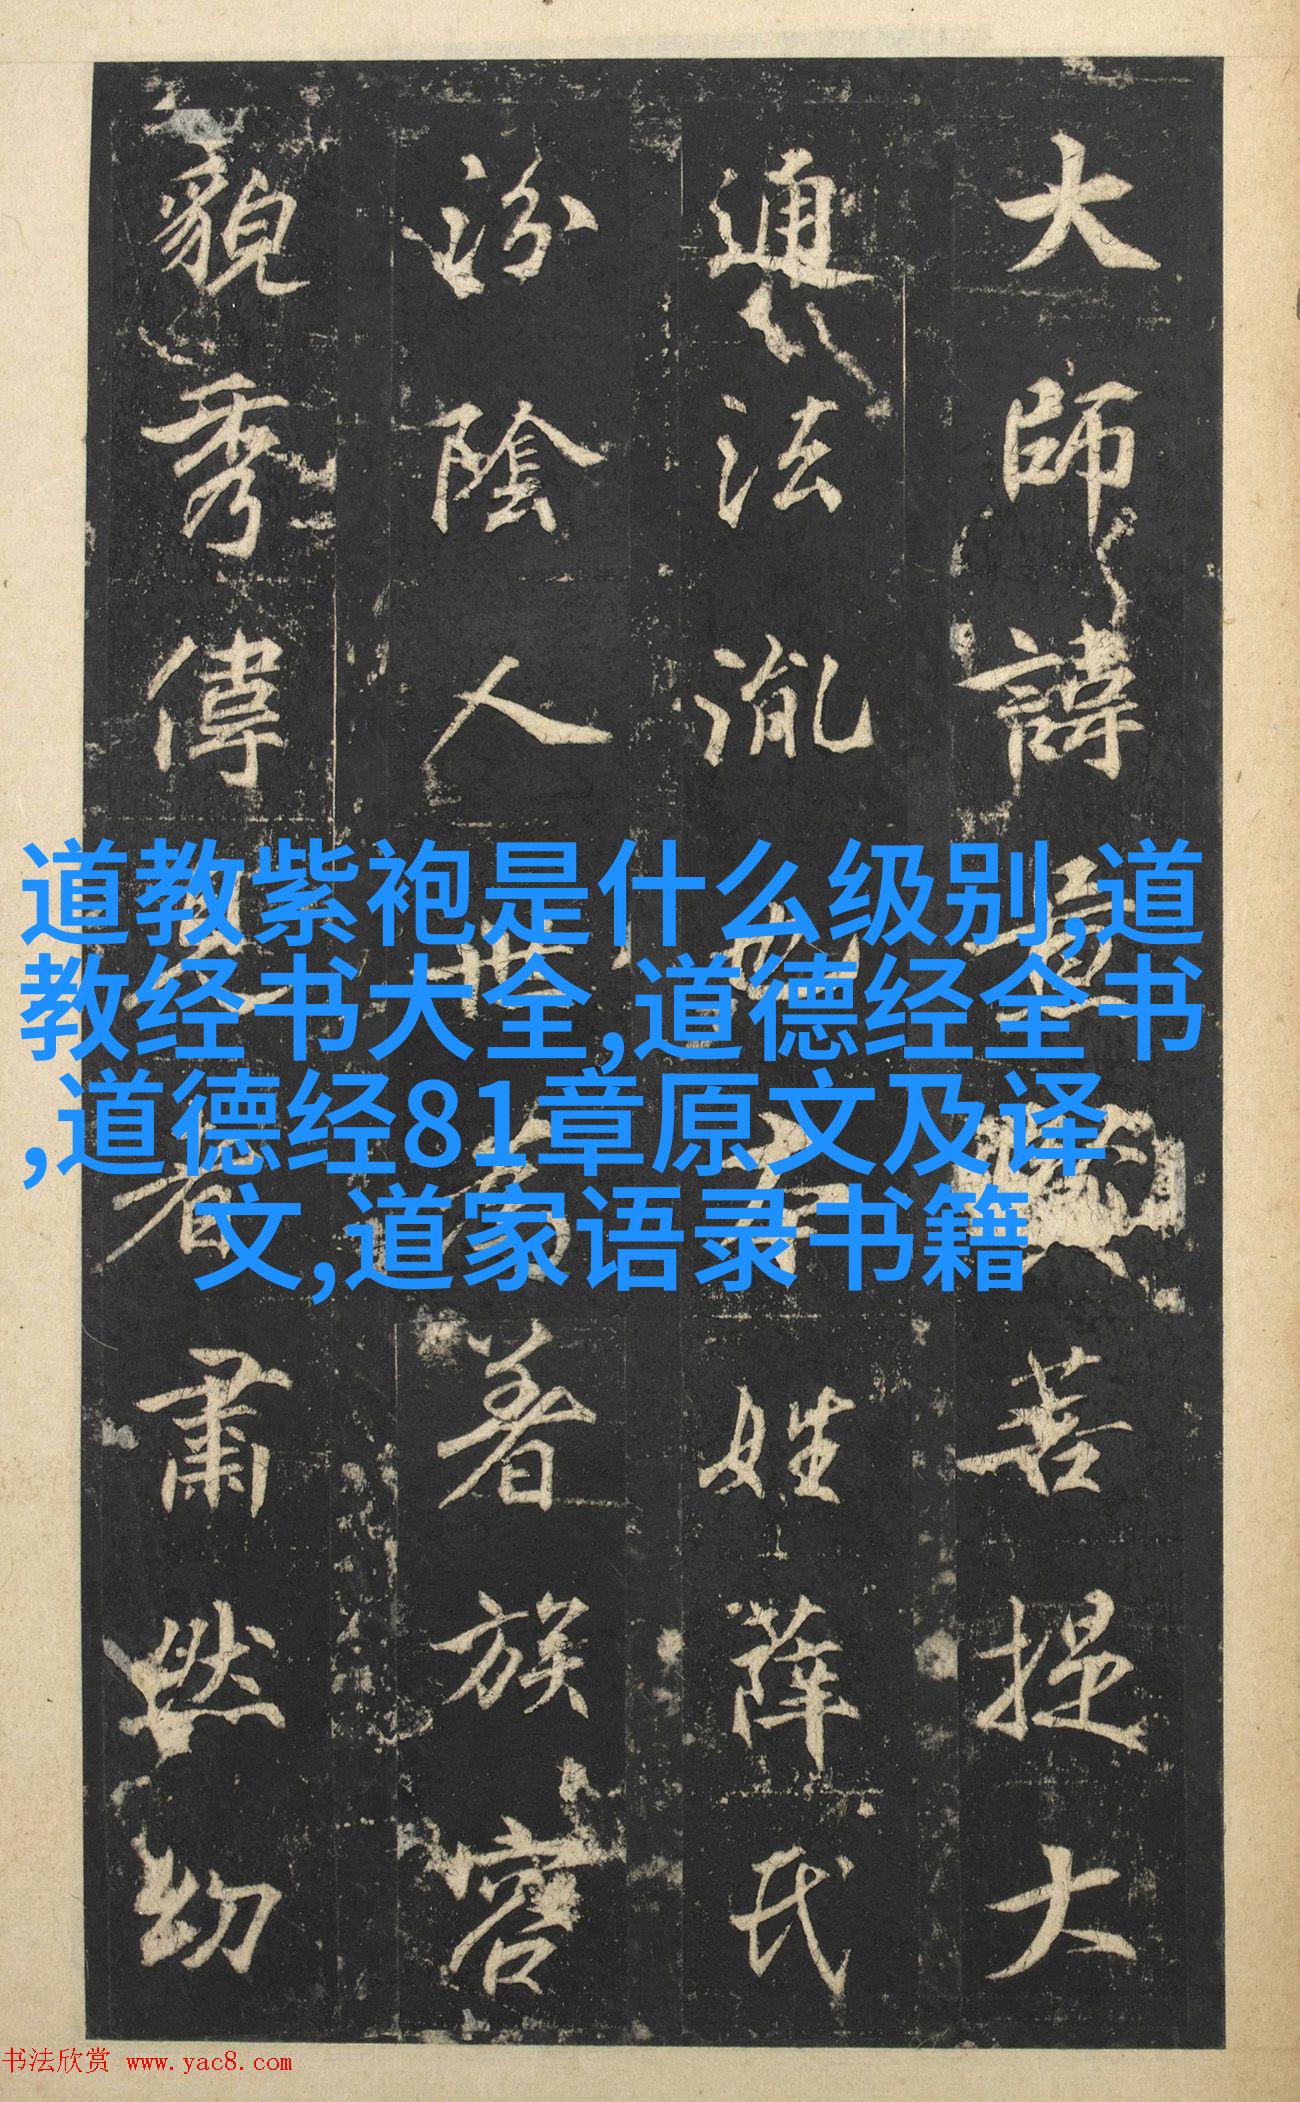 大師諱菩提大
通法也姓薛氏
汾陰人世為著族容
貌秀偉見者肅然幼
道教紫袍是什么级别,道
教经书大全,道德经全书
,道德经81章原文及译
文,道家语录书籍
书法欣赏 www.yac8.com